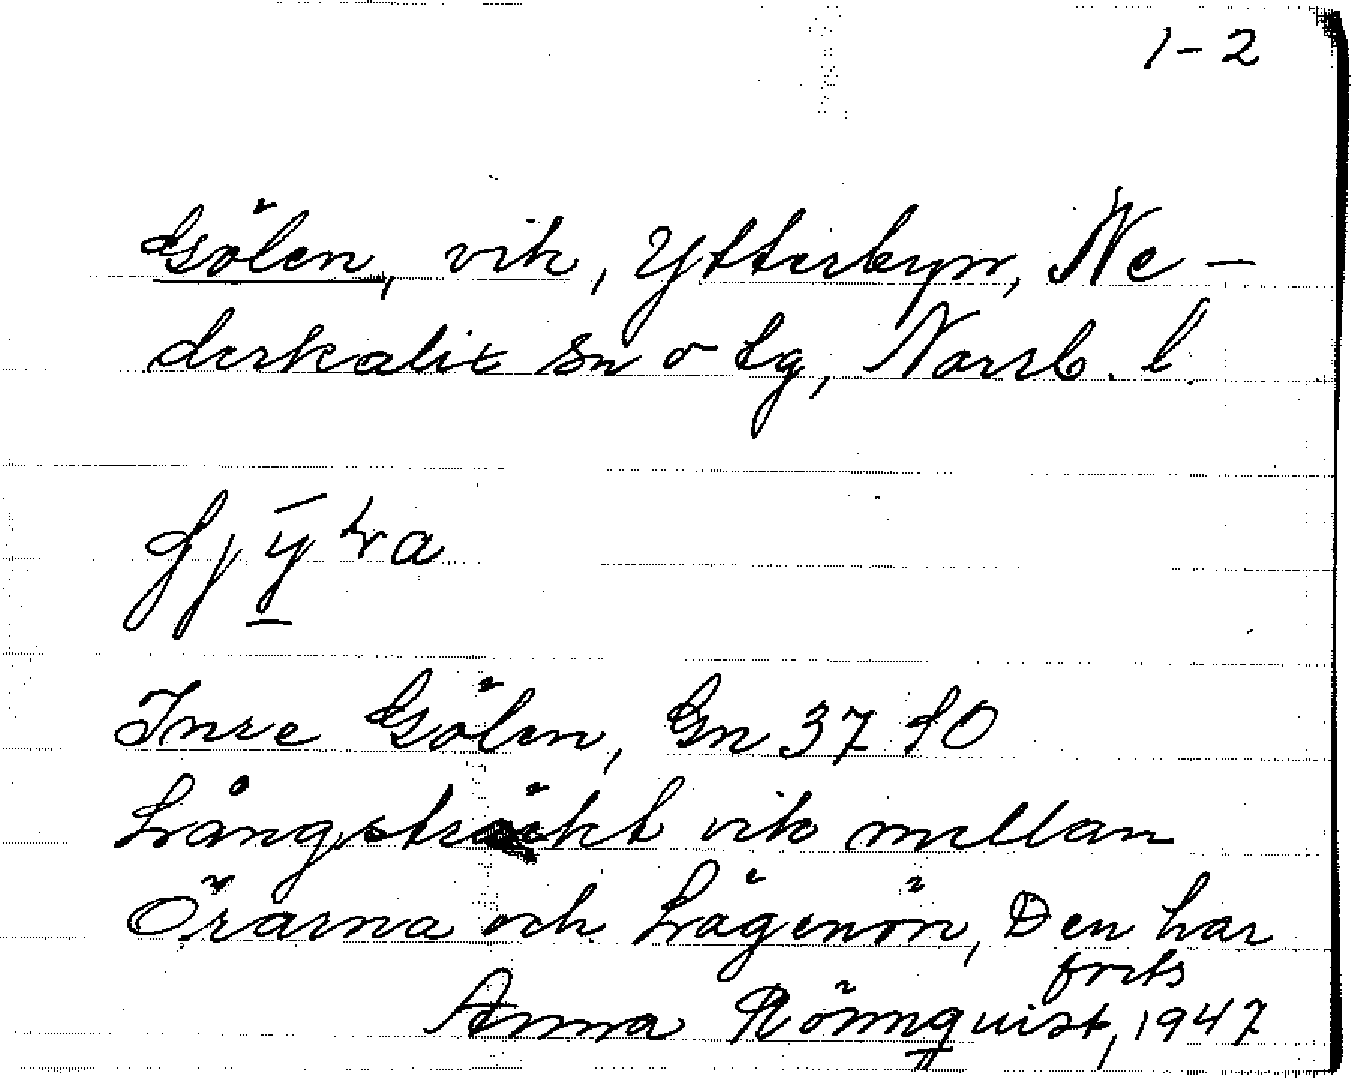 1-2
Gölen, vik, Ytterbyn, Ne-
derkalix sn o tg, Norrb. l.
Inre Gölen, Gn 37 f0
Långsträckt vik mellan
Örarna och Lågenön, Den har
forts
Anna Rönnquist, 1947